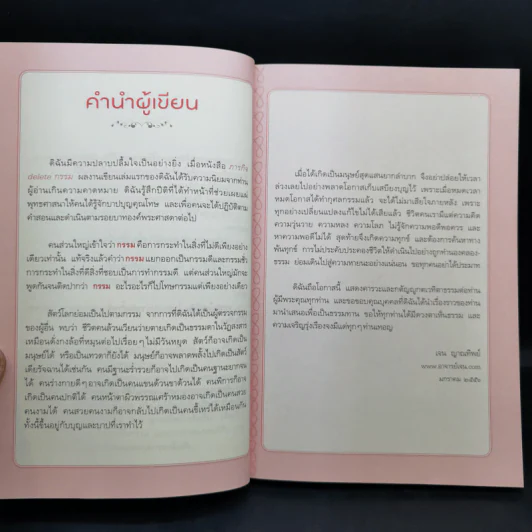 คำนำผู้เขียน
ดิฉันมีความปลาบปลื้มใจเป็นอย่างยิ่ง เมื่อหนังสือ ภารกิจ
delete กรรม ผลงานเขียนเล่มแรกของดิฉันได้รับความนิยมจากท่าน
ผู้อ่านเกินความคาดหมาย ดิฉันรู้สึกปีติที่ได้ทำหน้าที่ช่วยเผยแผ่
พุทธศาสนาให้คนได้รู้จักบาปบุญคุณโทษ และเพื่อคนจะได้ปฏิบัติตาม
คำสอนและดำเนินตามรอยบาทองค์พระศาสดาต่อไป
คนส่วนใหญ่เข้าใจว่า กรรม คือการกระทำในสิ่งที่ไม่ดีเพียงอย่าง
เดียวเท่านั้น แท้จริงแล้วคำว่า กรรม แยกออกเป็นกรรมดีและกรรมชั่ว
การกระทำในสิ่งที่ดีสิ่งที่ชอบเป็นการทำกรรมดี แต่คนส่วนใหญ่มักจะ
พูดกันจนติดปากว่า กรรม อะไรอะไรก็ไปโทษกรรมแต่เพียงอย่างเดียว
สัตว์โลกย่อมเป็นไปตามกรรม จากการที่ดิฉันได้เป็นผู้ตรวจกรรม
ของผู้อื่น พบว่า ชีวิตคนล้วนเวียนว่ายตายเกิดเป็นธรรมดาในวัฏสงสาร
เหมือนดั่งกงล้อที่หมุนต่อไปเรื่อยๆ ไม่มีวันหยุด สัตว์ก็อาจเกิดเป็น
มนุษย์ได้ หรือเป็นเทวดาก็ยังได้ มนุษย์ก็อาจพลาดพลั้งไปเกิดเป็นสัตว์
เดียรัจฉานได้เช่นกัน คนมีฐานะร่ำรวยก็อาจไปเกิดเป็นคนฐานะยากจน
ได้ คนร่างกายดีๆ อาจเกิดเป็นคนแขนด้วนขาด้วนได้ คนพิการก็อาจ
เกิดเป็นคนปกติได้ คนหน้าตาผิวพรรณเศร้าหมองอาจเกิดเป็นคนสวย
คนงามได้ คนสวยคนงามก็อาจกลับไปเกิดเป็นคนขี้เหร่ได้เหมือนกัน
ทั้งนี้ขึ้นอยู่กับบุญและบาปที่เราทำไว้
เมื่อได้เกิดเป็นมนุษย์สุดแสนยากลำบาก จึงอย่าปล่อยให้เวลา
ล่วงเลยไปอย่างพลาดโอกาสเก็บเสบียงบุญไว้ เพราะเมื่อหมดเวลา
หมดโอกาสได้ทำกุศลกรรมแล้ว จะได้ไม่มาเสียใจภายหลัง เพราะ
ทุกอย่างเปลี่ยนแปลงแก้ไขไม่ได้เสียแล้ว ชีวิตคนเรามีแต่ความคิด
ความวุ่นวาย ความหลง ความโลภ ไม่รู้จักความพอดีพอควร และ
หาความพอดีไม่ได้ สุดท้ายจึงเกิดความทุกข์ และต้องการค้นหาทาง
พ้นทุกข์ การไม่ประคับประคองชีวิตให้ดำเนินไปอย่างถูกทำนองคลอง-
ธรรม ย่อมเดินไปสู่ความหายนะอย่างแน่นอน ขอทุกคนอย่าได้ประมาท
ดิฉันถือโอกาสนี้ แสดงความเคารพและกตัญญูกตเวทิตาต่อท่าน
ผู้มีพระคุณทุกท่าน และขอขอบคุณบุคคลที่ดิฉันได้นำเรื่องราวของท่าน
มานำเสนอเพื่อเป็นธรรมทาน ขอให้ทุกท่านได้มีดวงตาเห็นธรรม และ
ความเจริญรุ่งเรืองจงมีแด่ทุกๆ ท่านเทอญ
เจน ญาณทิพย์
มกราคม ๒๕๕๑